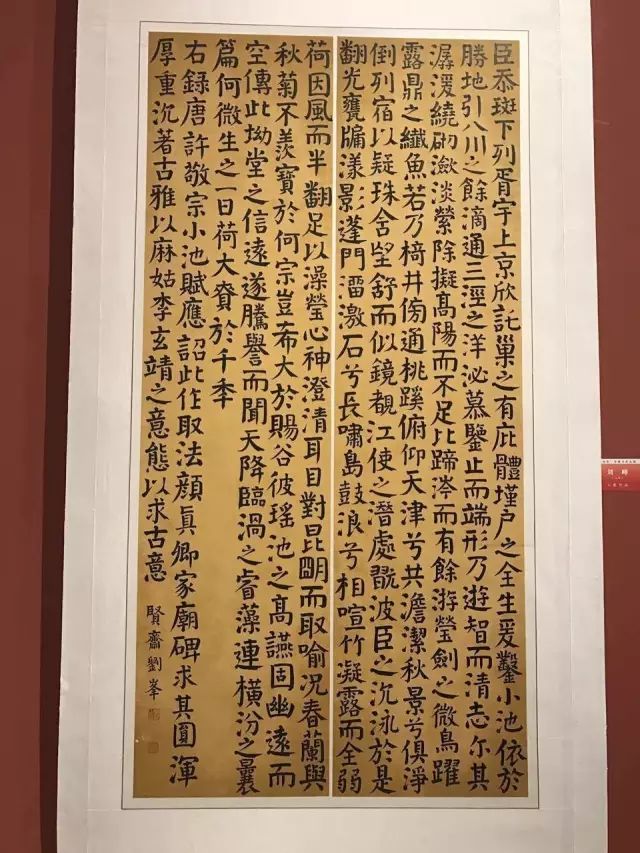 臣忝班下列胥宇上京欣託巢之有庇體墐户之全生爰鑿小池依於
勝地引八川之餘滴通三涇之洋泌慕鑒止而端形乃遊智而清志尔其
潺湲繞砌潋淡縈除擬高陽而不足比蹄涔而有餘游瑩劍之微鳥躍
露鼎之纖魚若乃檹井傍通桃蹊俯仰天津兮共澹潔秋景兮俱淨
倒列宿以疑珠含望舒而似鏡覩江使之潛處翫波臣之沉泳於是
翻光甕牖漾影蓬門澑激石兮長嘯島鼓浪兮相喧竹凝露而全弱
荷因風而半翻足以澡瑩心神澄清耳目對昆明而取喻况春蘭與
秋菊不羨寶於何宗豈希大於賜谷彼瑤池之高讌固幽遠而
空傳此坳堂之信遠遂騰譽而聞天降臨渦之睿藻連橫汾之曩
篇何微生之一日荷大賚於千秊
右録唐許敬宗小池賦應詔此作取法顔真卿家廟碑求其圓渾
厚重沉著古雅以麻姑李玄靖之意態以求古意
賢齋劉峯